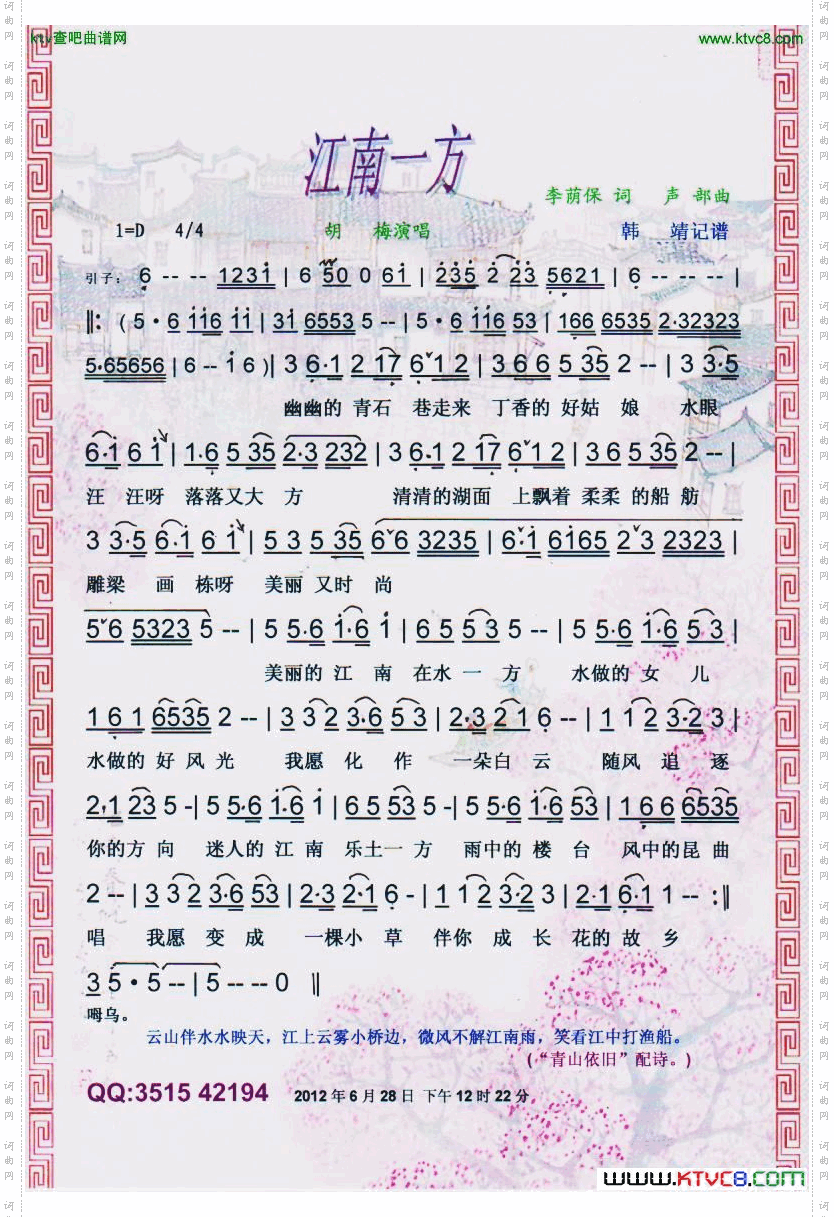 ktv查吧曲谱网 www.ktvc8.com
江南一方
李荫保 词 声 部曲
1=D 4/4 胡 梅演唱 韩 靖记谱
引子： 6 -- -- 1231 | 6 550 0 61 | 235 2 23 5621 | 6 -- -- -- |
‖: ( 5·6 116 11 | 31 6553 5 -- | 5·6 116 53 | 166 6535 2·32323
5·65656 | 6 -- 1 6 )| 3 6·1 2 17 6 1 2 | 3 6 6 5 35 2 -- | 3 3·5
幽幽的 青石 巷走来 丁香的 好姑 娘 水眼
6·1 6 1 | 1·6 5 35 2·3 232 | 3 6·1 2 17 6 1 2 | 3 6 5 35 2 -- |
汪 汪呀 落落又大 方 清清的湖面 上飘着 柔柔 的船 舫
3 3·5 6·1 6 1 | 5 3 5 35 6 6 3235 | 6·1 6165 2 3 2323 |
雕梁 画 栋呀 美丽 又时 尚
5 6 5323 5 -- | 5 5·6 1·6 1 | 6 5 5 3 5 -- | 5 5·6 1·6 5 3 |
美丽的 江 南 在水 一 方 水做的 女 儿
1 6 1 6535 2 -- | 3 3 2 3·6 5 3 | 2·3 2 1 6 -- | 1 1 2 3·2 3 |
水做的 好 风 光 我愿 化 作 一朵白 云 随风 追 逐
2·1 23 5 -| 5 5·6 1·6 1 | 6 5 53 5 -| 5 5·6 1·6 53 | 1 6 6 6535
你的方 向 迷人的 江 南 乐土一 方 雨中的 楼 台 风中的昆 曲
2 -- | 3 3 2 3·6 53 | 2·3 2·1 6 - | 1 1 2 3·2 3 | 2·1 6·1 1 -- :‖
唱 我愿 变 成 一棵小 草 伴你 成 长 花的 故 乡
3 5·5 -- | 5 -- -- 0 ‖
呣乌。
云山伴水水映天，江上云雾小桥边，微风不解江南雨，笑看江中打渔船。
(“青山依旧”配诗。)
QQ:3515 42194 2012 年 6 月 28 日 下午 12 时 22 分
www.KTVC8.com